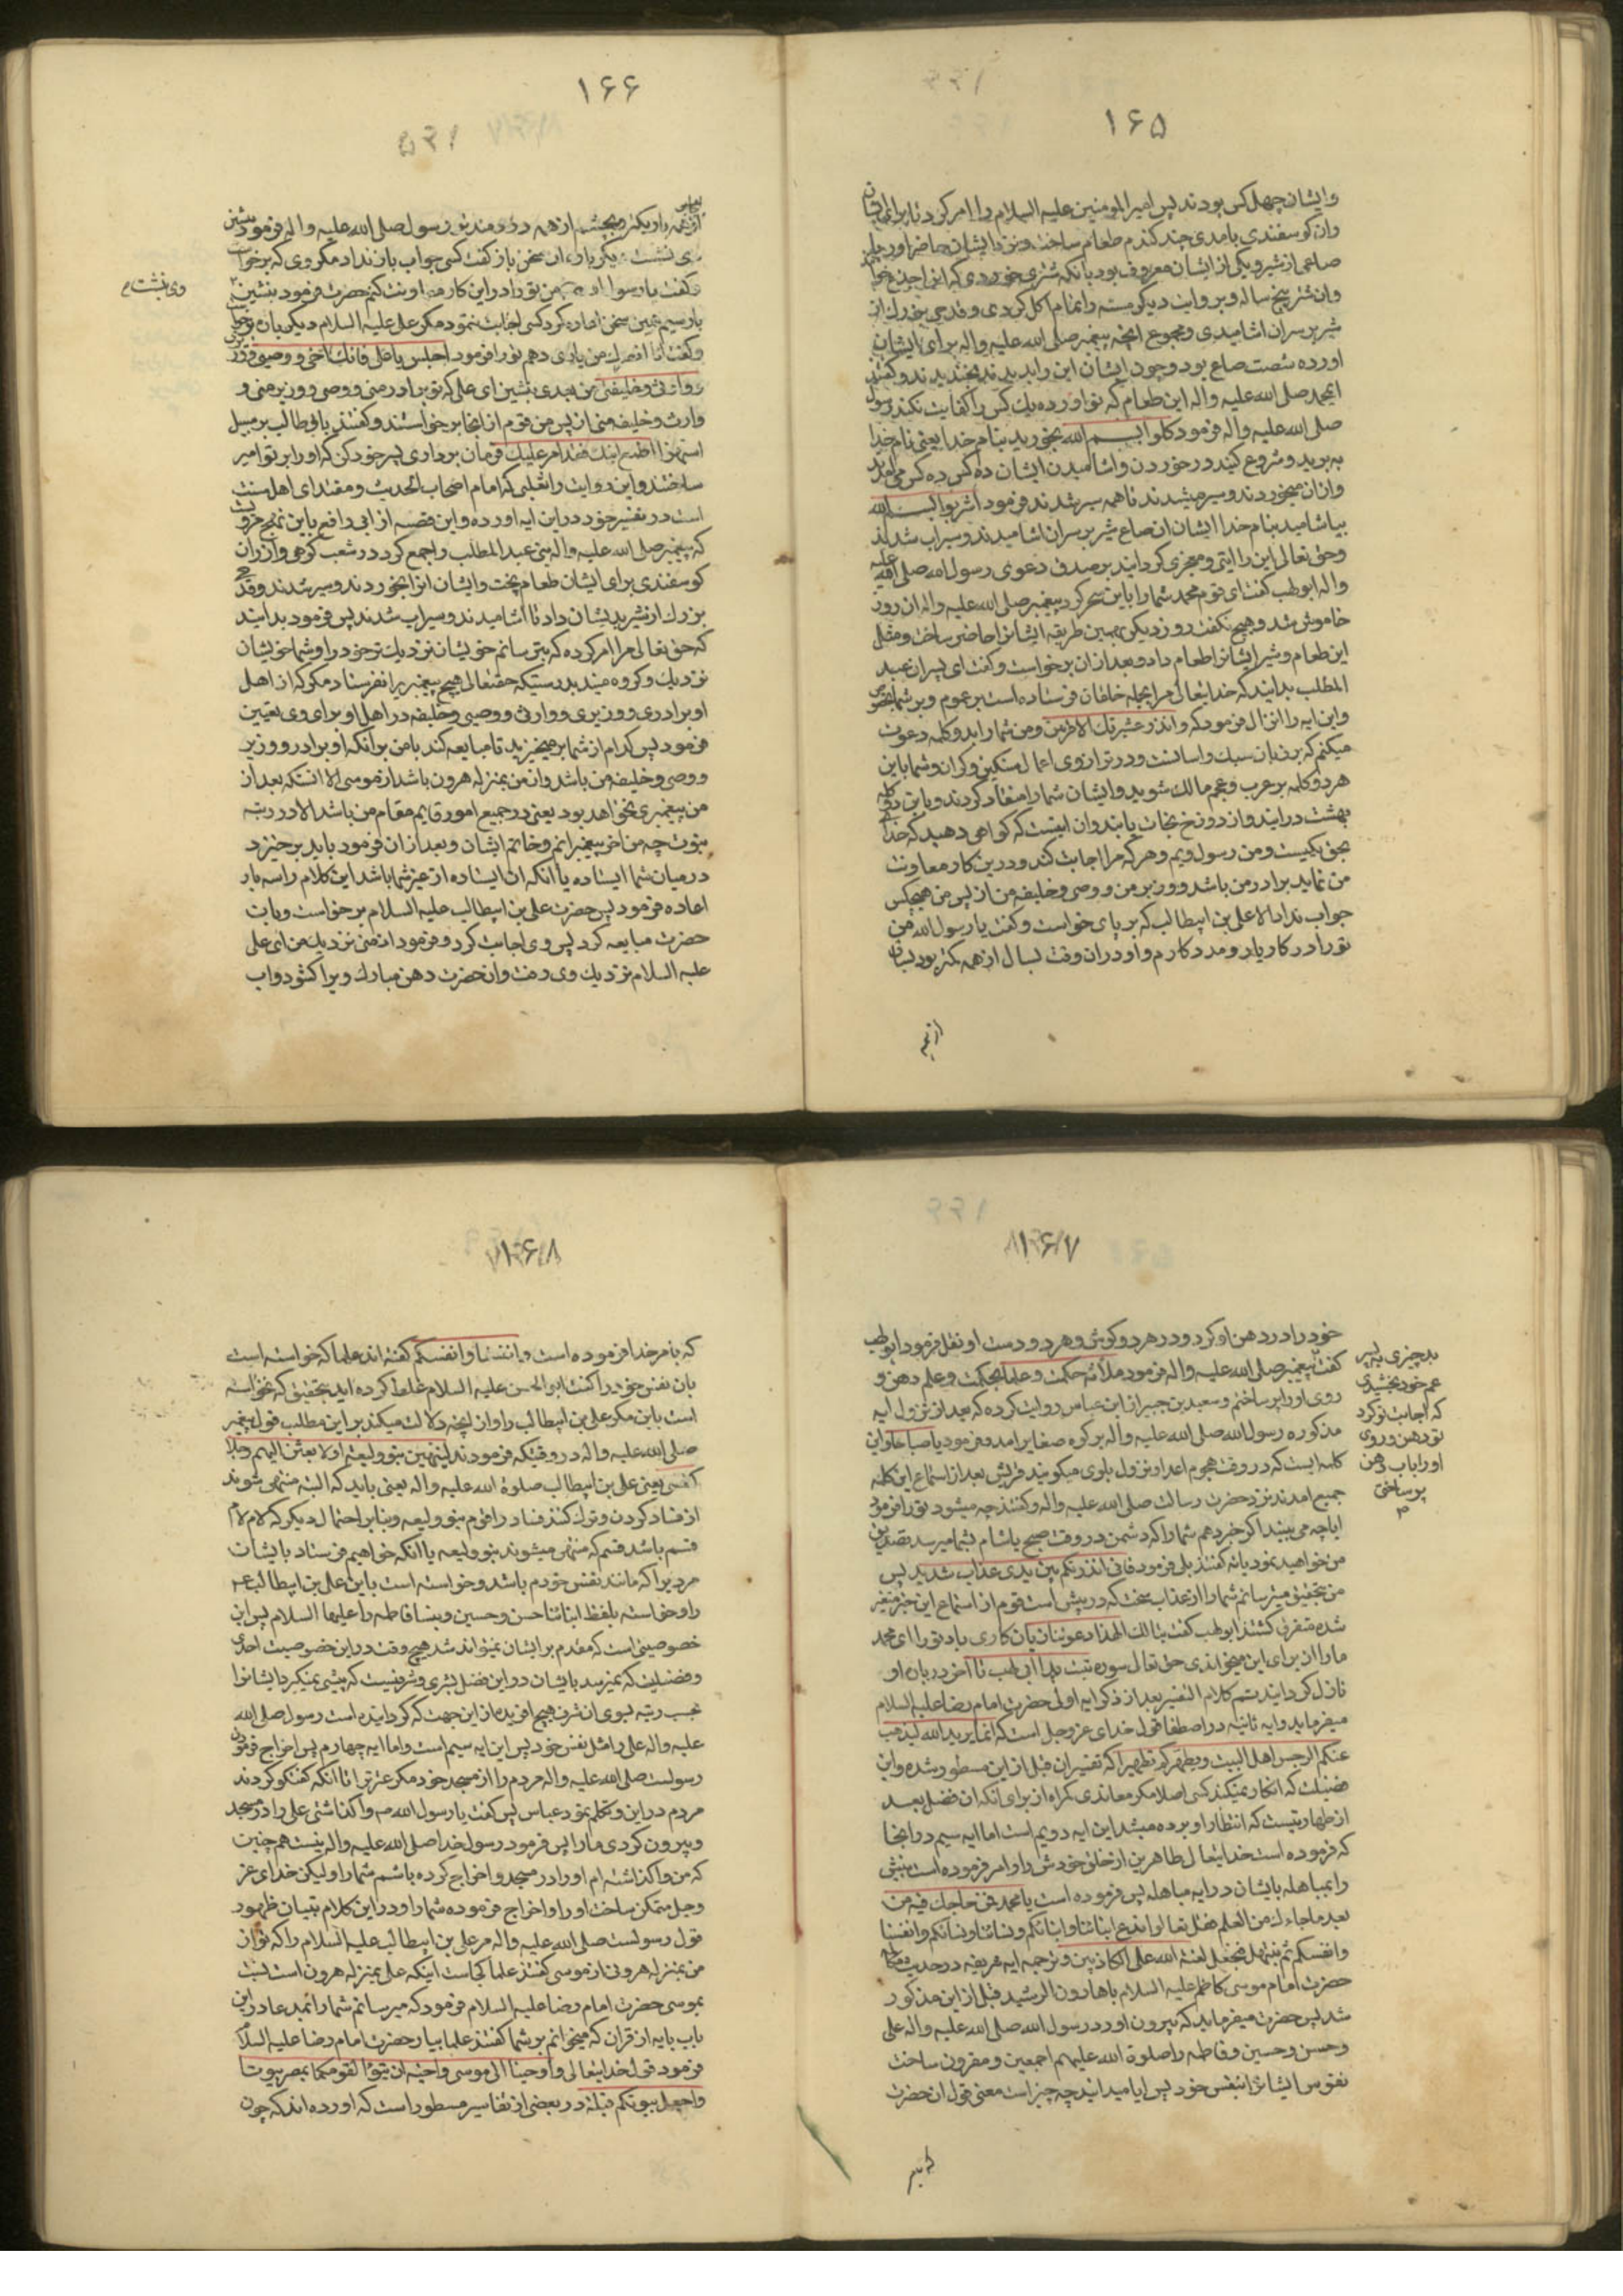 ۱۶۵
وایشان چهل کس بودند پس امیرالمومنین علیه السلام را امر کرد تا برای ایشان
ران کوسفندی بامدی چند کندم طعام ساخت و نزد ایشان حاضر اورد
صاعی از شیر و یکی از ایشان معروف بود بانکه شتری خوردی که
وان شتر پنج ساله و بروایت دیکر مسنه را تمام اکل کردی و قدحی بزرک از
شیر بر سر ان اشامیدی و مجموع انچه پیغمبر صلی الله علیه واله برای ایشان
اورده شصت صاع بود و چون ایشان این را بدیدند بخندیدند و کفتند
ایمحمد صلی الله علیه واله این طعام که تو اورده یک کس را کفایت نکند رسول
صلی الله علیه واله فرمود کلوا بسم الله بخورید بنام خدا یعنی نام خدا
به برید و شروع کنید در خوردن و اشامیدن ایشان ده کس ده کس می امدند
وازان میخوردند و سیر میشدند تا همه سیر شدند فرمود اشربوا بسم الله
بیاشامید بنام خدا ایشان ان صاع شیر بر سر ان اشامیدند و سیراب شدند
وحق تعالی این را ایتی و معجزی کردانید بر صدق دعوی رسول الله صلی الله علیه
واله ابولهب کفت ای قوم محمد شما را باین سحر کرد پیغمبر صلی الله علیه واله ان روز
خاموش شد و هیچ نکفت روز دیکر بهمین طریقه ایشانرا حاضر ساخت و مثل
این طعام و شیر ایشانرا طعام داد و بعد ازان برخواست و کفت ای پسران عبد
المطلب بدانید که خدایتعالی مرا بجمله خلقان فرستاده است بر عموم و بر شما بخصوص
واین ایه را انزال فرمود که وانذر عشیرتک الاقربین و من شما را بدو کلمه دعوت
میکنم که بر زبان سبک و اسانست و در ترازوی اعمال سنکین و کران و شما باین
هر دو کلمه بر عرب و عجم مالک شوید و ایشان شما را منقاد کردند و باین دو کلمه
بهشت درایند و از دوزخ نجات یابند و ان اینست که کواهی دهید که خدا
بحق یکیست و من رسول ویم و هر که مرا اجابت کند و درین کار معاونت
من نماید برادر من باشد و وزیر من و وصی و خلیفه من از پس من هیچکس
جواب نداد الا علی بن ابیطالب که بر پای خواست و کفت یا رسول الله من
تو را در کار یار و مددکارم و او دران وقت بسال از همه کمتر بود
۱۶۶
رسول صلی الله علیه واله فرمود بنشین
وی نشست دیکر بار ان سخن باز کفت کسی جواب باز نداد مکر وی که برخواست
وکفت یا رسول الله من تو را در این کار معاونت کنم حضرت فرمود بنشین
وی نشست م
بار سیم همین سخن اعاده کرد کسی اجابت ننمود مکر علی علیه السلام دیکر باره برخواست
وکفت انا انصرک من یاری دهم تو را فرمود اجلس یا علی فانک اخی و وصیی و وزیری
ووارثی وخلیفتی من بعدی بنشین ای علی که تو برادر منی و وصی و وزیر منی و
وارث و خلیفه منی از پس من قوم از انجا برخواستند و کفتند با ابوطالب بر سبیل
استهزا اطع ابنک فقد امر علیک فرمان برداری پسر خود کن که او را بر تو امیر
ساختند و این روایت را ثعلبی که امام اصحاب الحدیث و مقتدای اهل سنت
است در تفسیر خود در این ایه اورده و این قصه از ابی رافع باین نهج مرویست
که پیغمبر صلی الله علیه واله بنی عبدالمطلب را جمع کرد در شعب کوهی وازران
کوسفندی برای ایشان طعام پخت و ایشان انرا بخوردند و سیر شدند و قدحی
بزرک از شیر بدیشان داد تا اشامیدند و سیراب شدند پس فرمود بدانید
که حق تعالی مرا امر کرده که بترسانم خویشان نزدیکتر خود را و شما خویشان
نزدیک و کروه منید بدرستیکه حقتعالی هیچ پیغمبر را نفرستاد مکر که از اهل
او برادری و وزیری و وارثی و وصیی و خلیفه در اهل او برای وی تعیین
فرمود پس کدام از شما برمیخیزید تا مبایعه کند با من بر انکه او برادر و وزیر
و وصی و خلیفه من باشد و از من بمنزله هرون باشد از موسی الا انکه بعد از
من پیغمبری نخواهد بود یعنی در جمیع امور قایم مقام من باشد الا در رتبه
نبوت چه من اخر پیغمبرانم و خاتم ایشان و بعد ازان فرمود باید برخیزد
در میان شما ایستاده یا انکه ان ایستاده از غیر شما باشد این کلام را سه بار
اعاده فرمود پس حضرت علی بن ابیطالب علیه السلام برخواست و بان
حضرت مبایعه کرد پس وی اجابت کرد و فرمود ادن منی نزدیک من ای علی
علیه السلام نزدیک وی رفت و ان حضرت دهن مبارک ویرا کشود و اب
۱۶۷
خود را در دهن او کرد و در هر دو کوش و هر دو دست او تفل فرمود ابولهب
کفت پیغمبر صلی الله علیه واله فرمود ملأته حکمت و علما بحکمت و علم دهن و
روی او را پر ساختم و سعید بن جبیر از ابن عباس روایت کرده که بعد از نزول ایه
مذکوره رسول الله صلی الله علیه واله بر کوه صفا برامد و فرمود یا صباحاه و این
کلمه ایست که در وقت هجوم اعدا و نزول بلوی میکویند قریش بعد از استماع این کلمه
جمیع امدند نزد حضرت رسالت صلی الله علیه واله و کفتند چه میشود تو را فرمود
ایا چه می بینید اکر خبر دهم شما را که دشمن در وقت صبح یا شام بشما میرسد تصدیق
من خواهید نمود یا نه کفتند بلی فرمود فانی انذرتکم بین یدی عذاب شدید پس
من بتحقیق میترسانم شما را از عذاب سخت که در پیش است قوم از استماع این خبر متغیر
شده متفرق کشتند ابولهب کفت تبا لک الهذا دعوتنا زیان کاری باد تو را ای محمد
ما را از برای این میخواندی حق تعالی سوره تبت یدا ابی لهب تا اخر در باره او
نازل کردانید تتم کلام التفسیر بعد از ذکر ایه اولی حضرت امام رضا علیه السلام
میفرماید و ایه ثانیه در اصطفا قول خدای عز وجل است که انما یرید الله لیذهب
عنکم الرجس اهل البیت ویطهرکم تطهیرا که تفسیر ان قبل از این مسطور شده و این
فضیلت که انکار نمیکند کسی اصلا مکر معاندی کمراه از برای انکه ان فضل بعد
از طهارتیست که انتظار او برده میشد این ایه دویم است اما ایه سیم در انجا
که فرموده است خدایتعالی طاهرین از خلق خودش را و امر فرموده است نبیش
را بمباهله بایشان در ایه مباهله پس فرموده است یا محمد فمن حاجک فیه من
بعد ما جاءک من العلم فقل تعالوا ندع ابناءنا وابناءکم ونساءنا ونساءکم وانفسنا
وانفسکم ثم نبتهل فنجعل لعنة الله علی الکاذبین و ترجمه ایه شریفه در حدیث
حضرت امام موسی کاظم علیه السلام با هارون الرشید قبل از این مذکور
شد پس حضرت میفرماید که بیرون اورد رسول الله صلی الله علیه واله علی
وحسن وحسین و فاطمه را صلوة الله علیهم اجمعین و مقرون ساخت
نفوس ایشانرا بنفس خود پس ایا میدانید چه چیز است معنی قول ان حضرت
بد چیزی به پسر
عم خود بخشیدی
که اجابت تو کرد
تو دهن و روی
او را باب دهن
پر ساختی
م
۱۶۸
که بامر خدا فرموده است وانفسنا وانفسکم کفته اند علما که خواسته است
بان نفس خود را کفت ابوالحسن علیه السلام غلط کرده اید بتحقیق که نخواسته
است باین مکر علی بن ابیطالب را و از انچه دلالت میکند بر این مطلب قول پیغمبر
صلی الله علیه واله در وقتیکه فرمودند لینتهین بنو ولیعه او لابعثن الیهم رجلا
کنفسی یعنی علی بن ابیطالب صلوة الله علیه واله یعنی باید که البته منتهی شوند
از فساد کردن و ترک کنند فساد را قوم بنو ولیعه و بنابر احتمال دیکر که لام لام
قسم باشد قسم که منتهی میشوند بنو ولیعه یا انکه خواهیم فرستاد بایشان
مردیرا که مانند نفس خودم باشد و خواسته است باین علی بن ابیطالب
را و خواسته بلفظ ابنائنا حسن و حسین و بنسا فاطمه را علیها السلام پس این
خصوصیتی است که مقدم بر ایشان نمیتواند شد هیچ وقت در این خصوصیت احدی
و فضیلت که نمیرسد بایشان در این فضل بشری و شرفیست که پیشی نمیکیرد ایشانرا
بحسب رتبه بسوی ان شرف هیچ افریده از این جهت که کردانیده است رسول صلی الله
علیه واله علی را مثل نفس خود پس این ایه سیم است و اما ایه چهارم پس اخراج فرمودن
رسولست صلی الله علیه واله مردم را از مسجد خود مکر عترترا تا انکه کفتکو کردند
مردم در این و تکلم نمود عباس پس کفت یا رسول الله واکذاشتی علی را در مسجد
و بیرون کردی ما را پس فرمود رسول خدا صلی الله علیه واله نیست همچنین
که من واکذاشته ام او را در مسجد و اخراج کرده باشم شما را ولیکن خدای عز
وجل متمکن ساخت او را و اخراج فرموده شما را و در این کلام تبیان ظهور
قول رسولست صلی الله علیه واله مر علی بن ابیطالب علیه السلام را که تو از
من بمنزله هرونی از موسی کفتند علما کجاست اینکه علی بمنزله هرون است نسبت
بموسی حضرت امام رضا علیه السلام فرمود که میرسانم شما را بمدعا در این
باب بایه از قران که میخوانم بر شما کفتند علما بیار حضرت امام رضا علیه السلام
فرمود قول خدایتعالی واوحینا الی موسی واخیه ان تبوءا لقومکما بمصر بیوتا
واجعلوا بیوتکم قبلة در بعضی از تفاسیر مسطور است که اورده اند که چون